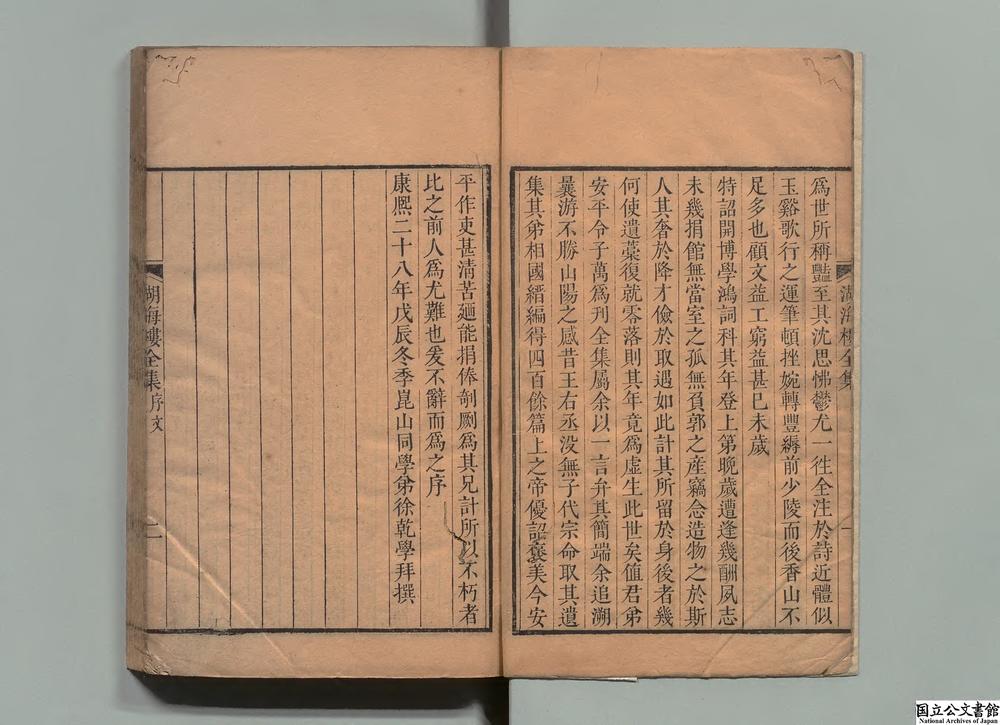 爲世所稱豔至其沈思怫鬱尤一徃全注於詩近體似
玉谿歌行之運筆頓挫婉轉豐縟前少陵而後香山不
足多也顧文益工窮益甚巳未歲
特詔開博學鴻詞科其年登上第晚歲遭逢幾酬夙志
未幾捐館無當室之孤無負郭之産竊念造物之於斯
人其奢於降才儉於取遇如此計其所留於身後者幾
何使遺藁復就零落則其年竟爲虛生此世矣值君弟
安平令子萬爲刋全集屬余以一言弁其簡端余追溯
曩游不勝山陽之感昔王右丞没無子代宗命取其遺
集其弟相國縉編得四百餘篇上之帝優詔襃美今安
湖海樓全集
一
平作吏甚清苦廼能捐俸剞劂爲其兄計所以不朽者
比之前人爲尤難也爰不辭而爲之序
康熈二十八年戊辰冬季崑山同學弟徐乾學拜撰
湖海樓全集
序文
二
国立公文書館
National Archives of Japan